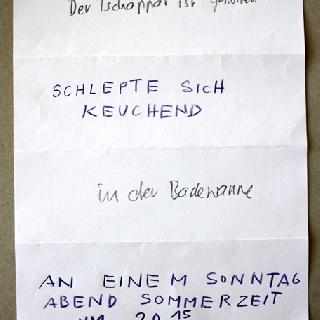 Der Tschappat ist
SCHLEPTE SICH
KEUCHEND
in der Badewanne
AN EINEM SONNTAG
ABEND SOMMERZEIT
UM 20 15